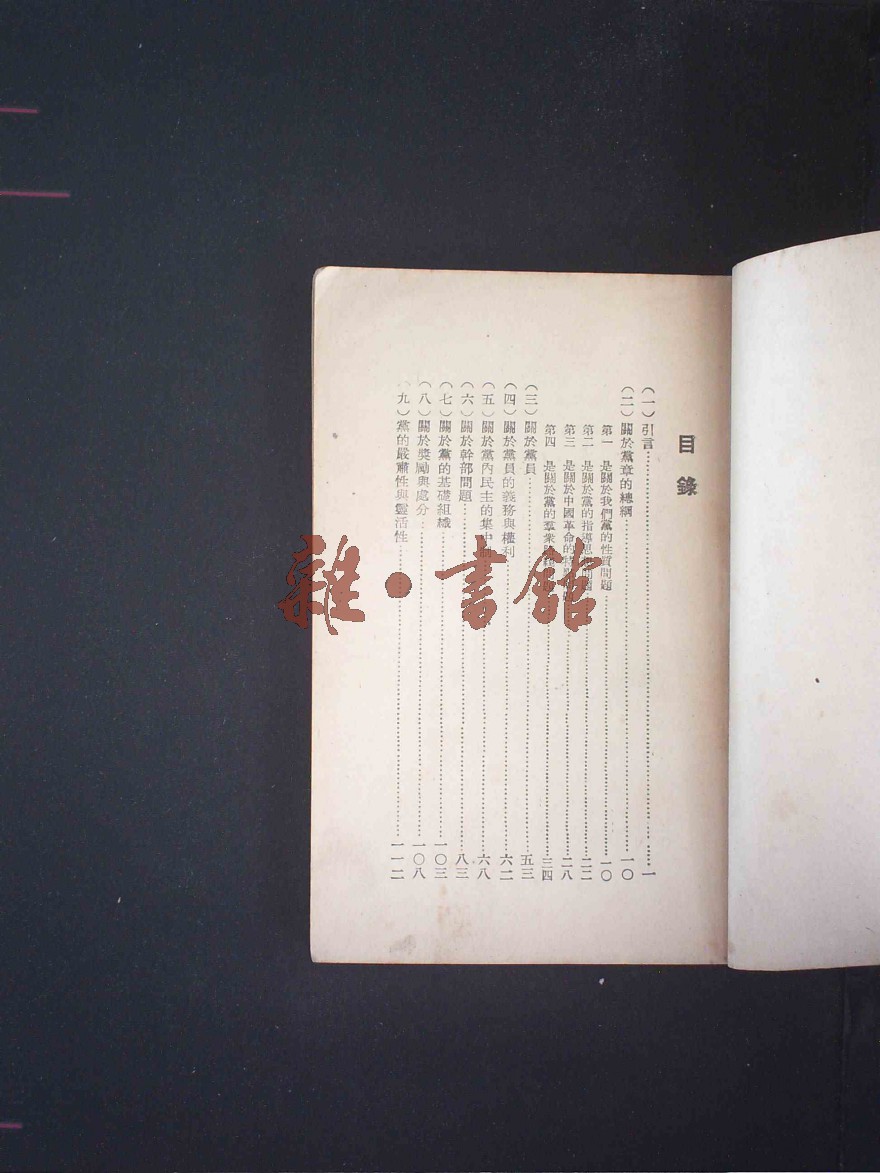 目錄
（一）引言……一
（二）關於黨章的總綱……一〇
第一　是關於我們黨的性質問題……一〇
第二　是關於黨的指導思……二二
第三　是關於中國革命的特……二八
第四　是關於黨的羣衆……三四
（三）關於黨員……五三
（四）關於黨員的義務與權利……六二
（五）關於黨內民主的集中制……六八
（六）關於幹部問題……八三
（七）關於黨的基礎組織……一〇三
（八）關於獎勵與處分……一〇八
（九）黨的嚴肅性與靈活性……一一二
雜·書館